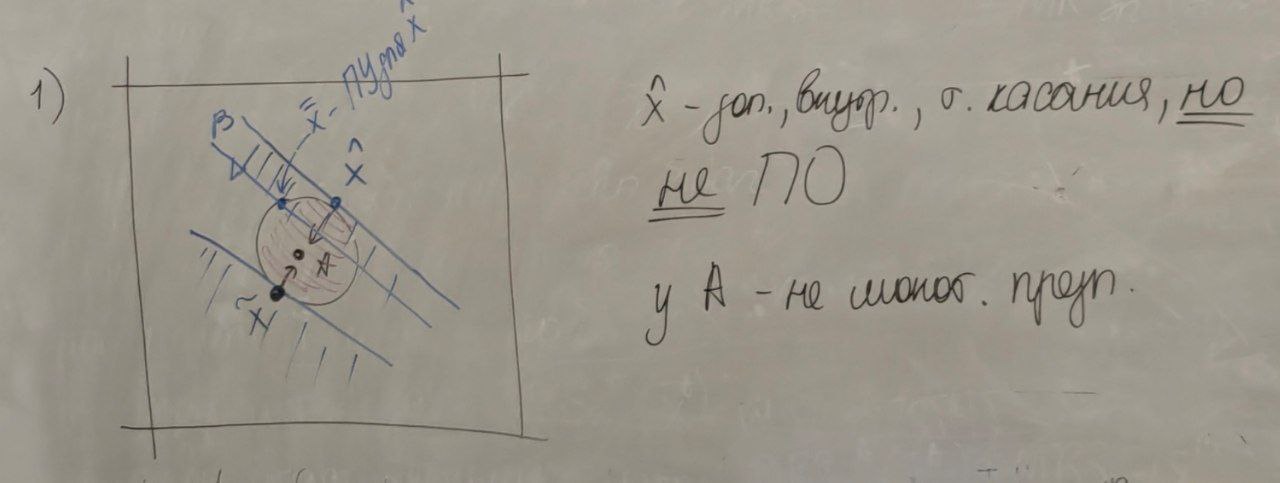 1)
B
x̿ - ПУ для x̂
x̂
A
x̃
x̂ - доп., внутр., т. касания, но
не ПО
у A - не монот. предп.